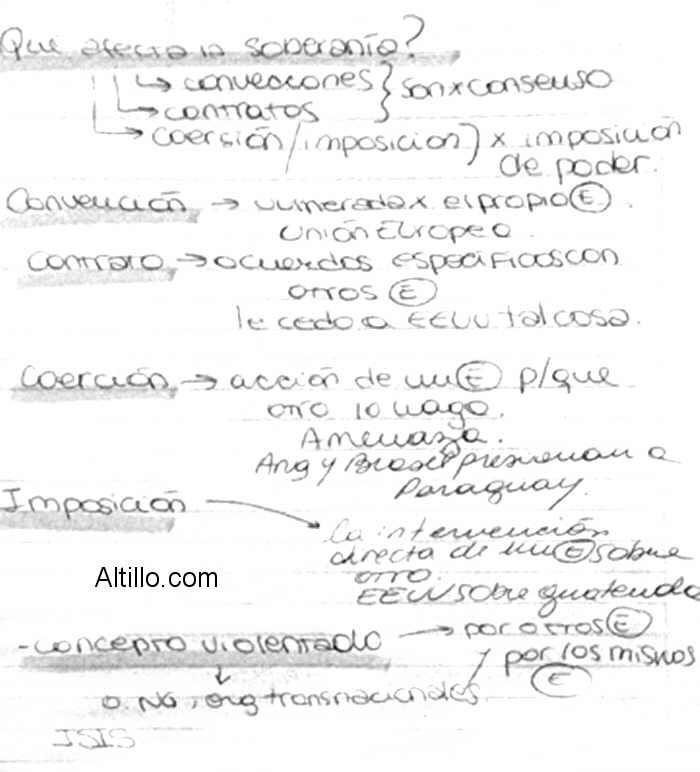 Que afecta la soberanía?
↳ convenciones } son x consenso
↳ contratos
→ coersión/imposicion) x imposición
de poder.
Convención → vulnerada x el propio (E).
Unión Europea.
Contrato → acuerdos específicos con
otros (E)
le cedo a EEUU tal cosa.
Coerción → acción de un (E) p/que
otro lo haga.
Amenaza.
Arg y Brasil presionan a
Paraguay.
Imposición
La intervención
directa de un (E) sobre
otro.
EEUU sobre guatemala
Altillo.com
- concepto violentado → por otros (E)
y por los mismos
(E)
↓
o. NG, org transnacionales
ISIS